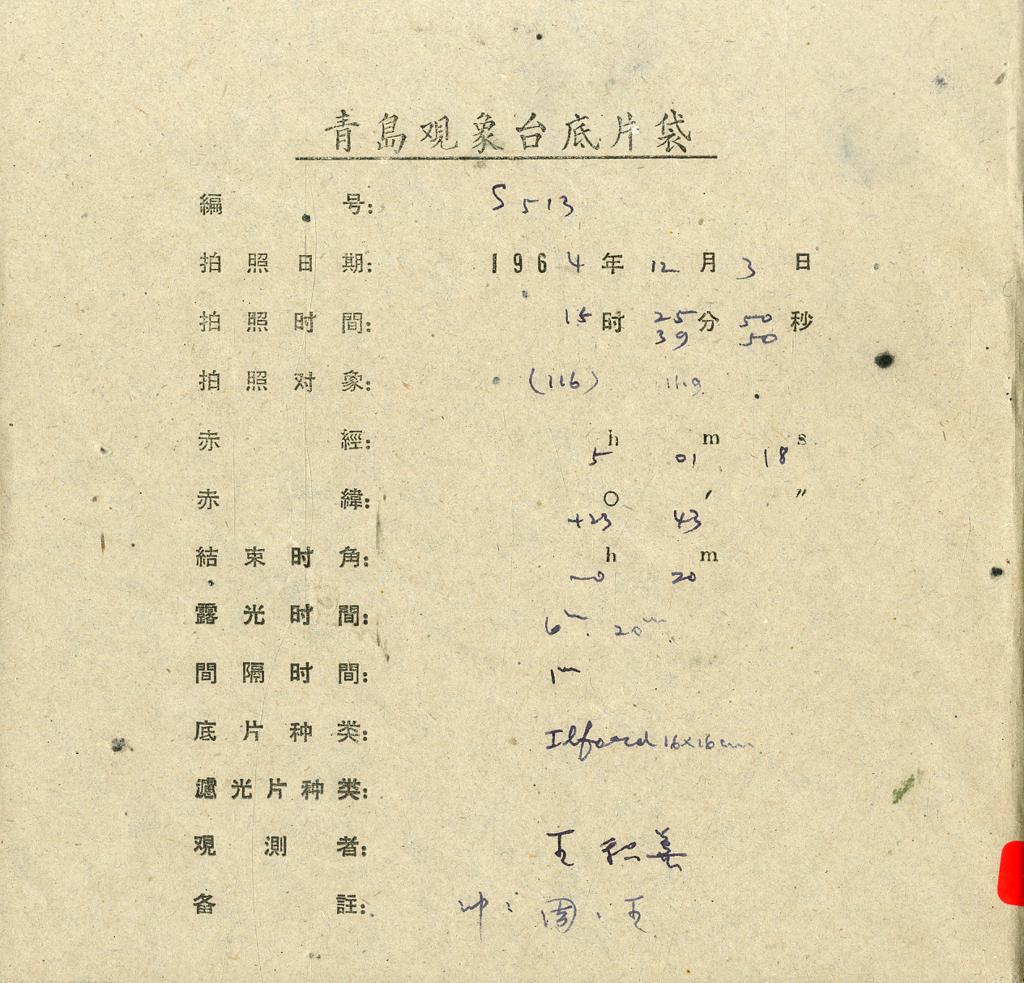 青島观象台底片袋
編号: S 513
拍照日期: 1964年12月3日
拍照时間: 15时25分50秒
39 50
拍照对象: (116) 1119
赤經: 5h 01m 18s
赤緯: +23° 43′ ″
結束时角: -0h 20m
露光时間: 6m. 20m.
間隔时間: 1m
底片种类: Ilford 16×16cm
濾光片种类:
观測者: 王
备註: 冲: 周、王